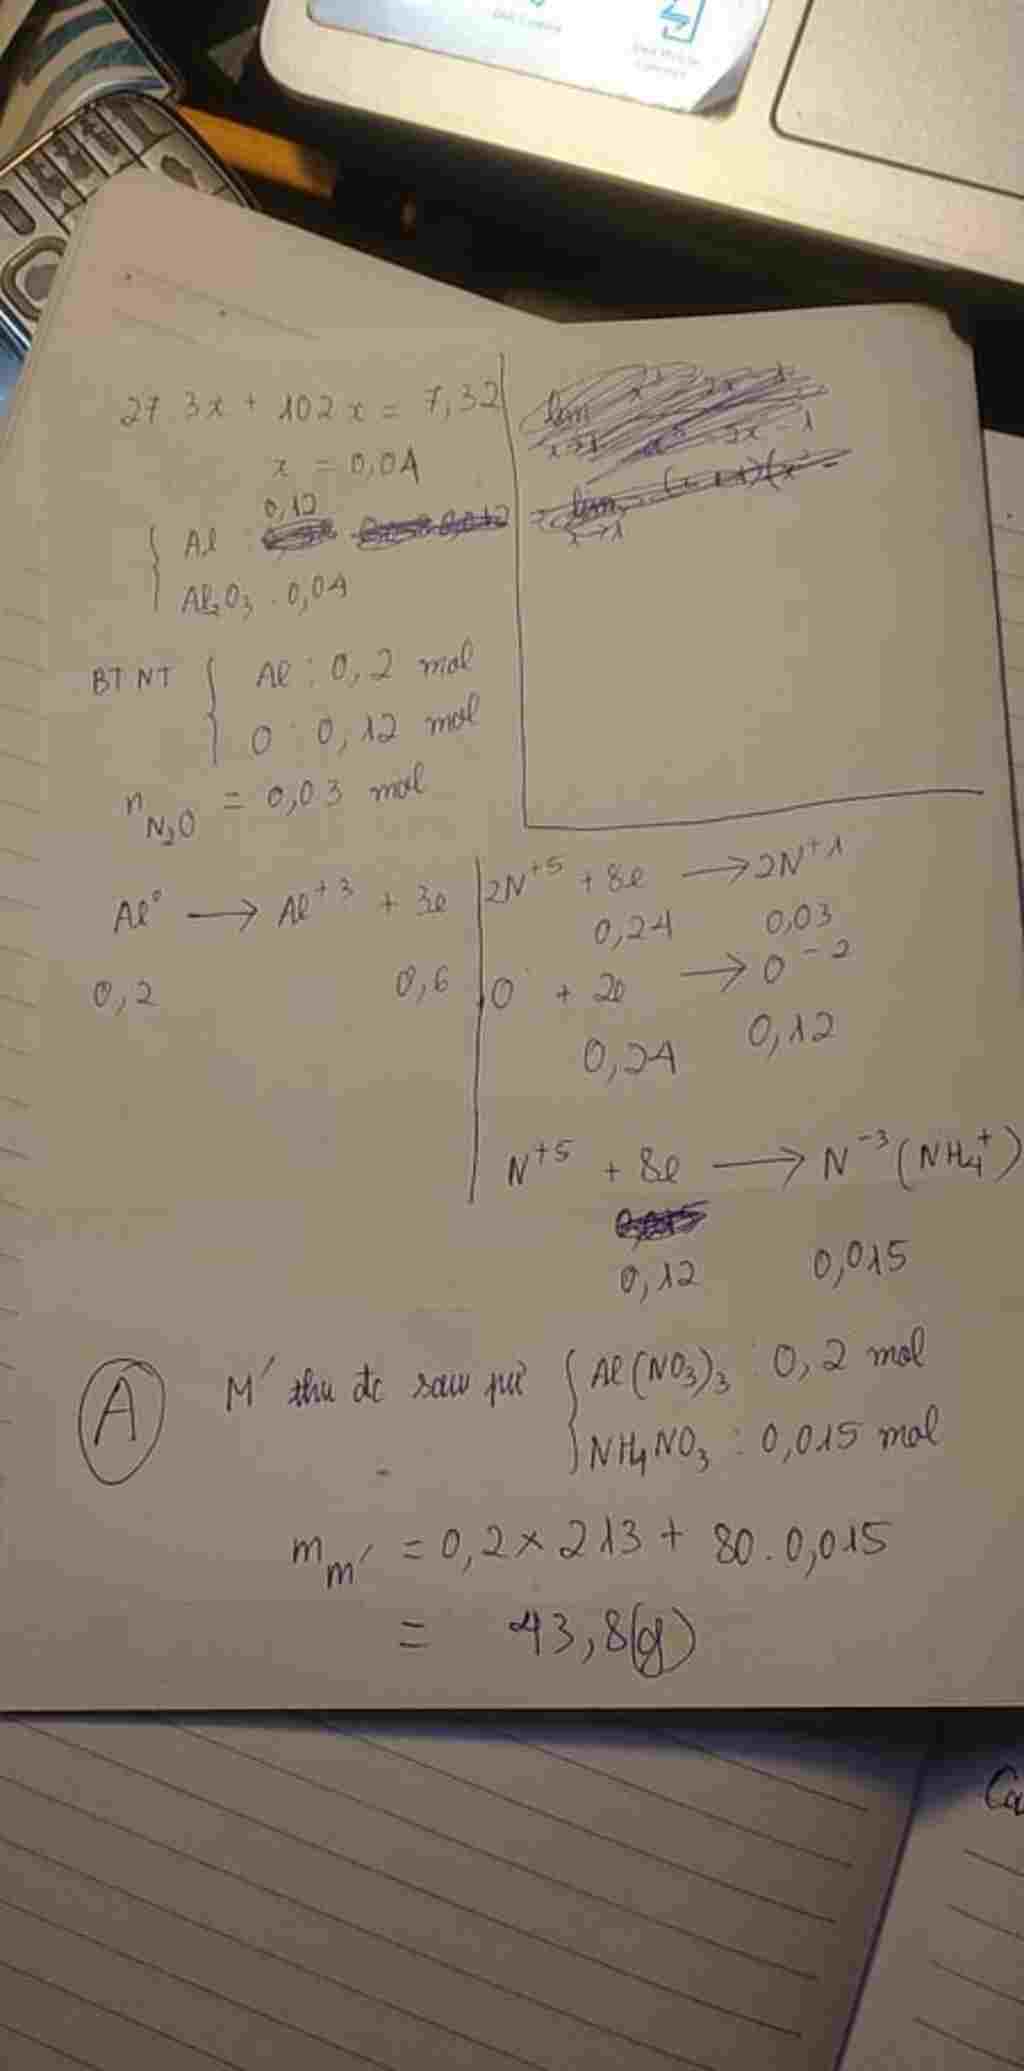 27 3x + 102x = 7,32
x = 0,04
0,12
Al :
Al₂O₃ : 0,04
BTNT { Al : 0,2 mol
O : 0,12 mol
n N₂O = 0,03 mol
Al⁰ → Al⁺³ + 3e
0,2 0,6
2N⁺⁵ + 8e → 2N⁺¹
0,24 0,03
O + 2e → O⁻²
0,24 0,12
N⁺⁵ + 8e → N⁻³ (NH₄⁺)
0,12 0,015
A
M' thu đc sau pứ { Al(NO₃)₃ : 0,2 mol
NH₄NO₃ : 0,015 mol
m m' = 0,2 × 213 + 80 . 0,015
= 43,8(g)